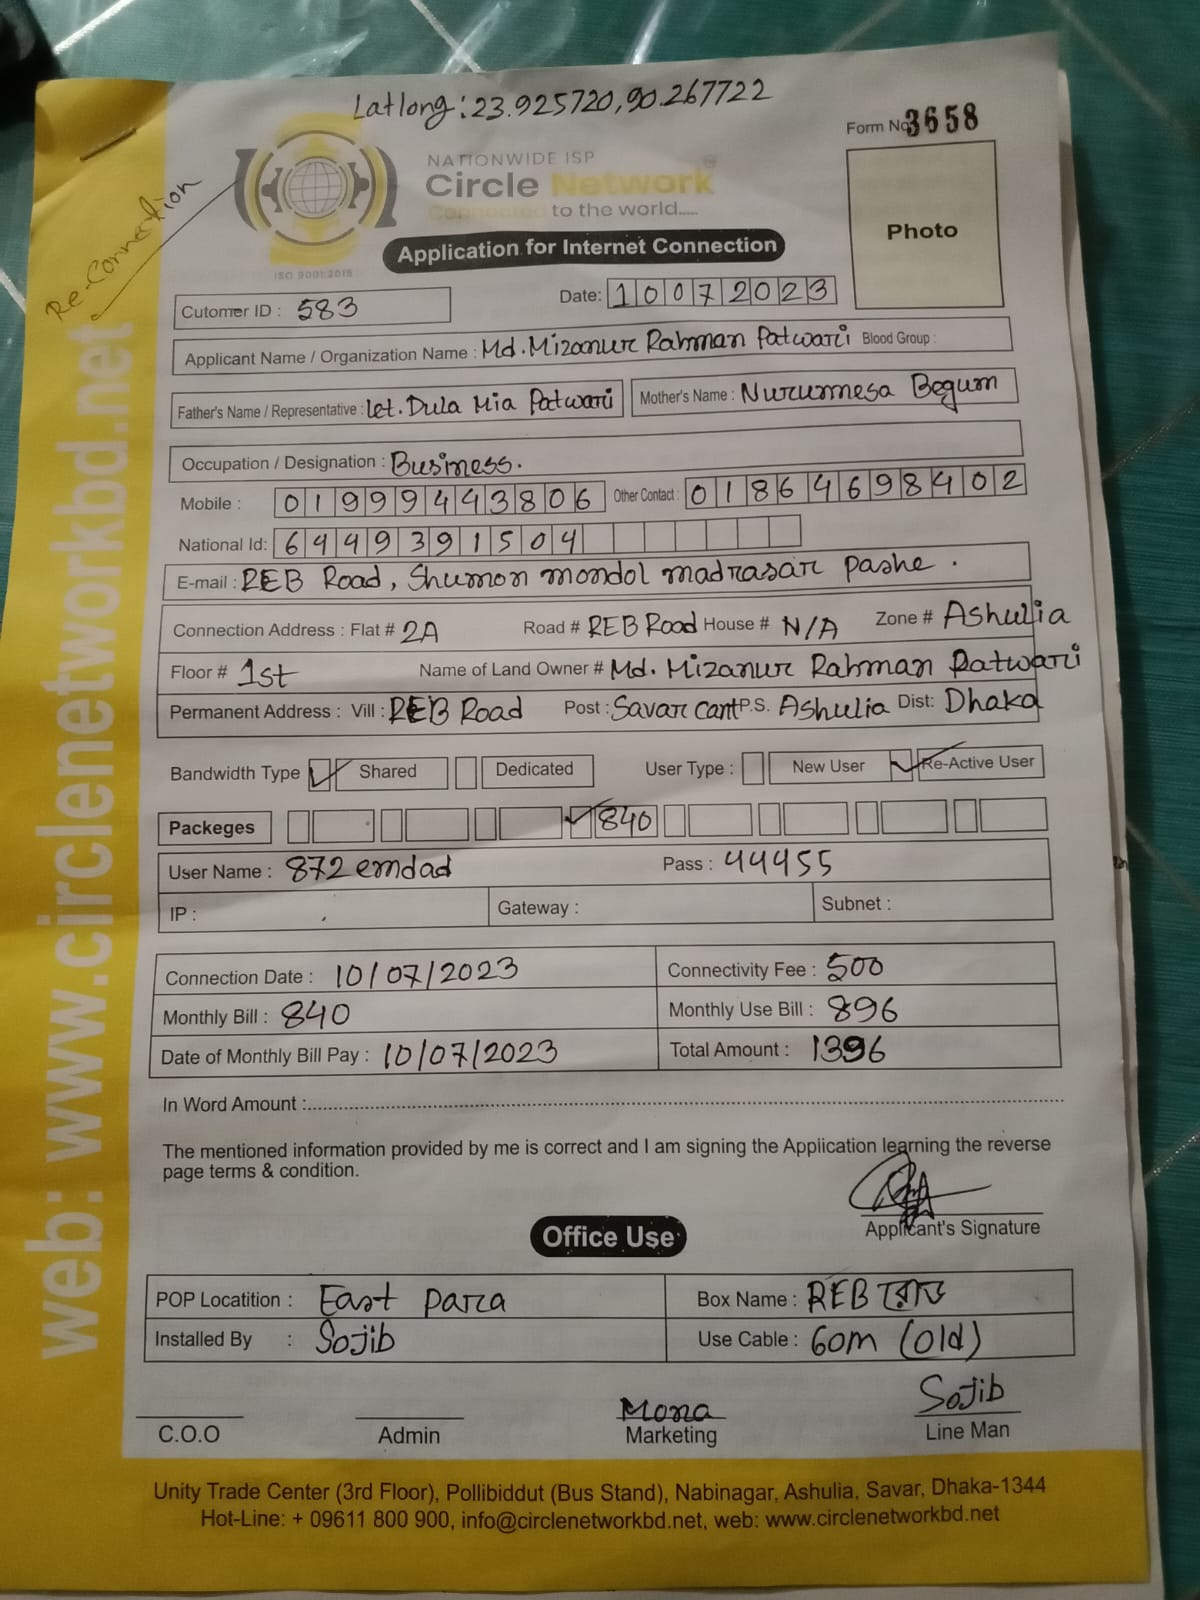 Latlong: 23.925720,90.267722
Form No 3658
Re-Connention
NATIONWIDE ISP
Circle Network
Connected to the world.....
ISO 9001:2015
Application for Internet Connection
Photo
Cutomer ID : 583
Date: 10072023
Applicant Name / Organization Name : Md. Mizanur Rahman Patwari Blood Group :
Father's Name / Representative : let. Dula Mia Patwari Mother's Name : Nururnnesa Begum
Occupation / Designation : Business.
Mobile : 01999443806 Other Contact : 01864698402
National Id: 6449391504
E-mail : REB Road, Shumon mondol madrasar pashe .
Connection Address : Flat # 2A Road # REB Road House # N/A Zone # Ashulia
Floor # 1st Name of Land Owner # Md. Mizanur Rahman Patwari
Permanent Address : Vill : REB Road Post : Savar cant P.S. Ashulia Dist: Dhaka
Bandwidth Type ✓ Shared Dedicated User Type : New User ✓ Re-Active User
Packeges ✓ 840
User Name : 872 emdad Pass : 44455
IP : Gateway : Subnet :
Connection Date : 10/07/2023 Connectivity Fee : 500
Monthly Bill : 840 Monthly Use Bill : 896
Date of Monthly Bill Pay : 10/07/2023 Total Amount : 1396
In Word Amount :
The mentioned information provided by me is correct and I am signing the Application learning the reverse
page terms & condition.
Applicant's Signature
Office Use
POP Locatition : East para Box Name : REB রোড
Installed By : Sojib Use Cable : 60m (old)
C.O.O Admin Mona Marketing Sojib Line Man
Unity Trade Center (3rd Floor), Pollibiddut (Bus Stand), Nabinagar, Ashulia, Savar, Dhaka-1344
Hot-Line: + 09611 800 900, info@circlenetworkbd.net, web: www.circlenetworkbd.net
web: www.circlenetworkbd.net